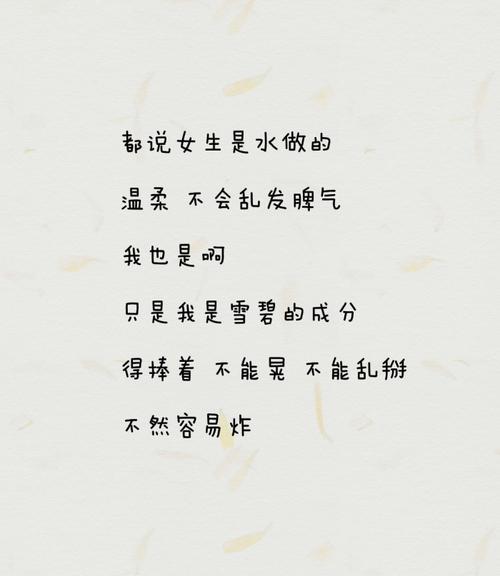 都说女生是水做的
温柔 不会乱发脾气
我也是啊
只是我是雪碧的成分
得捧着 不能晃 不能乱掰
不然容易炸